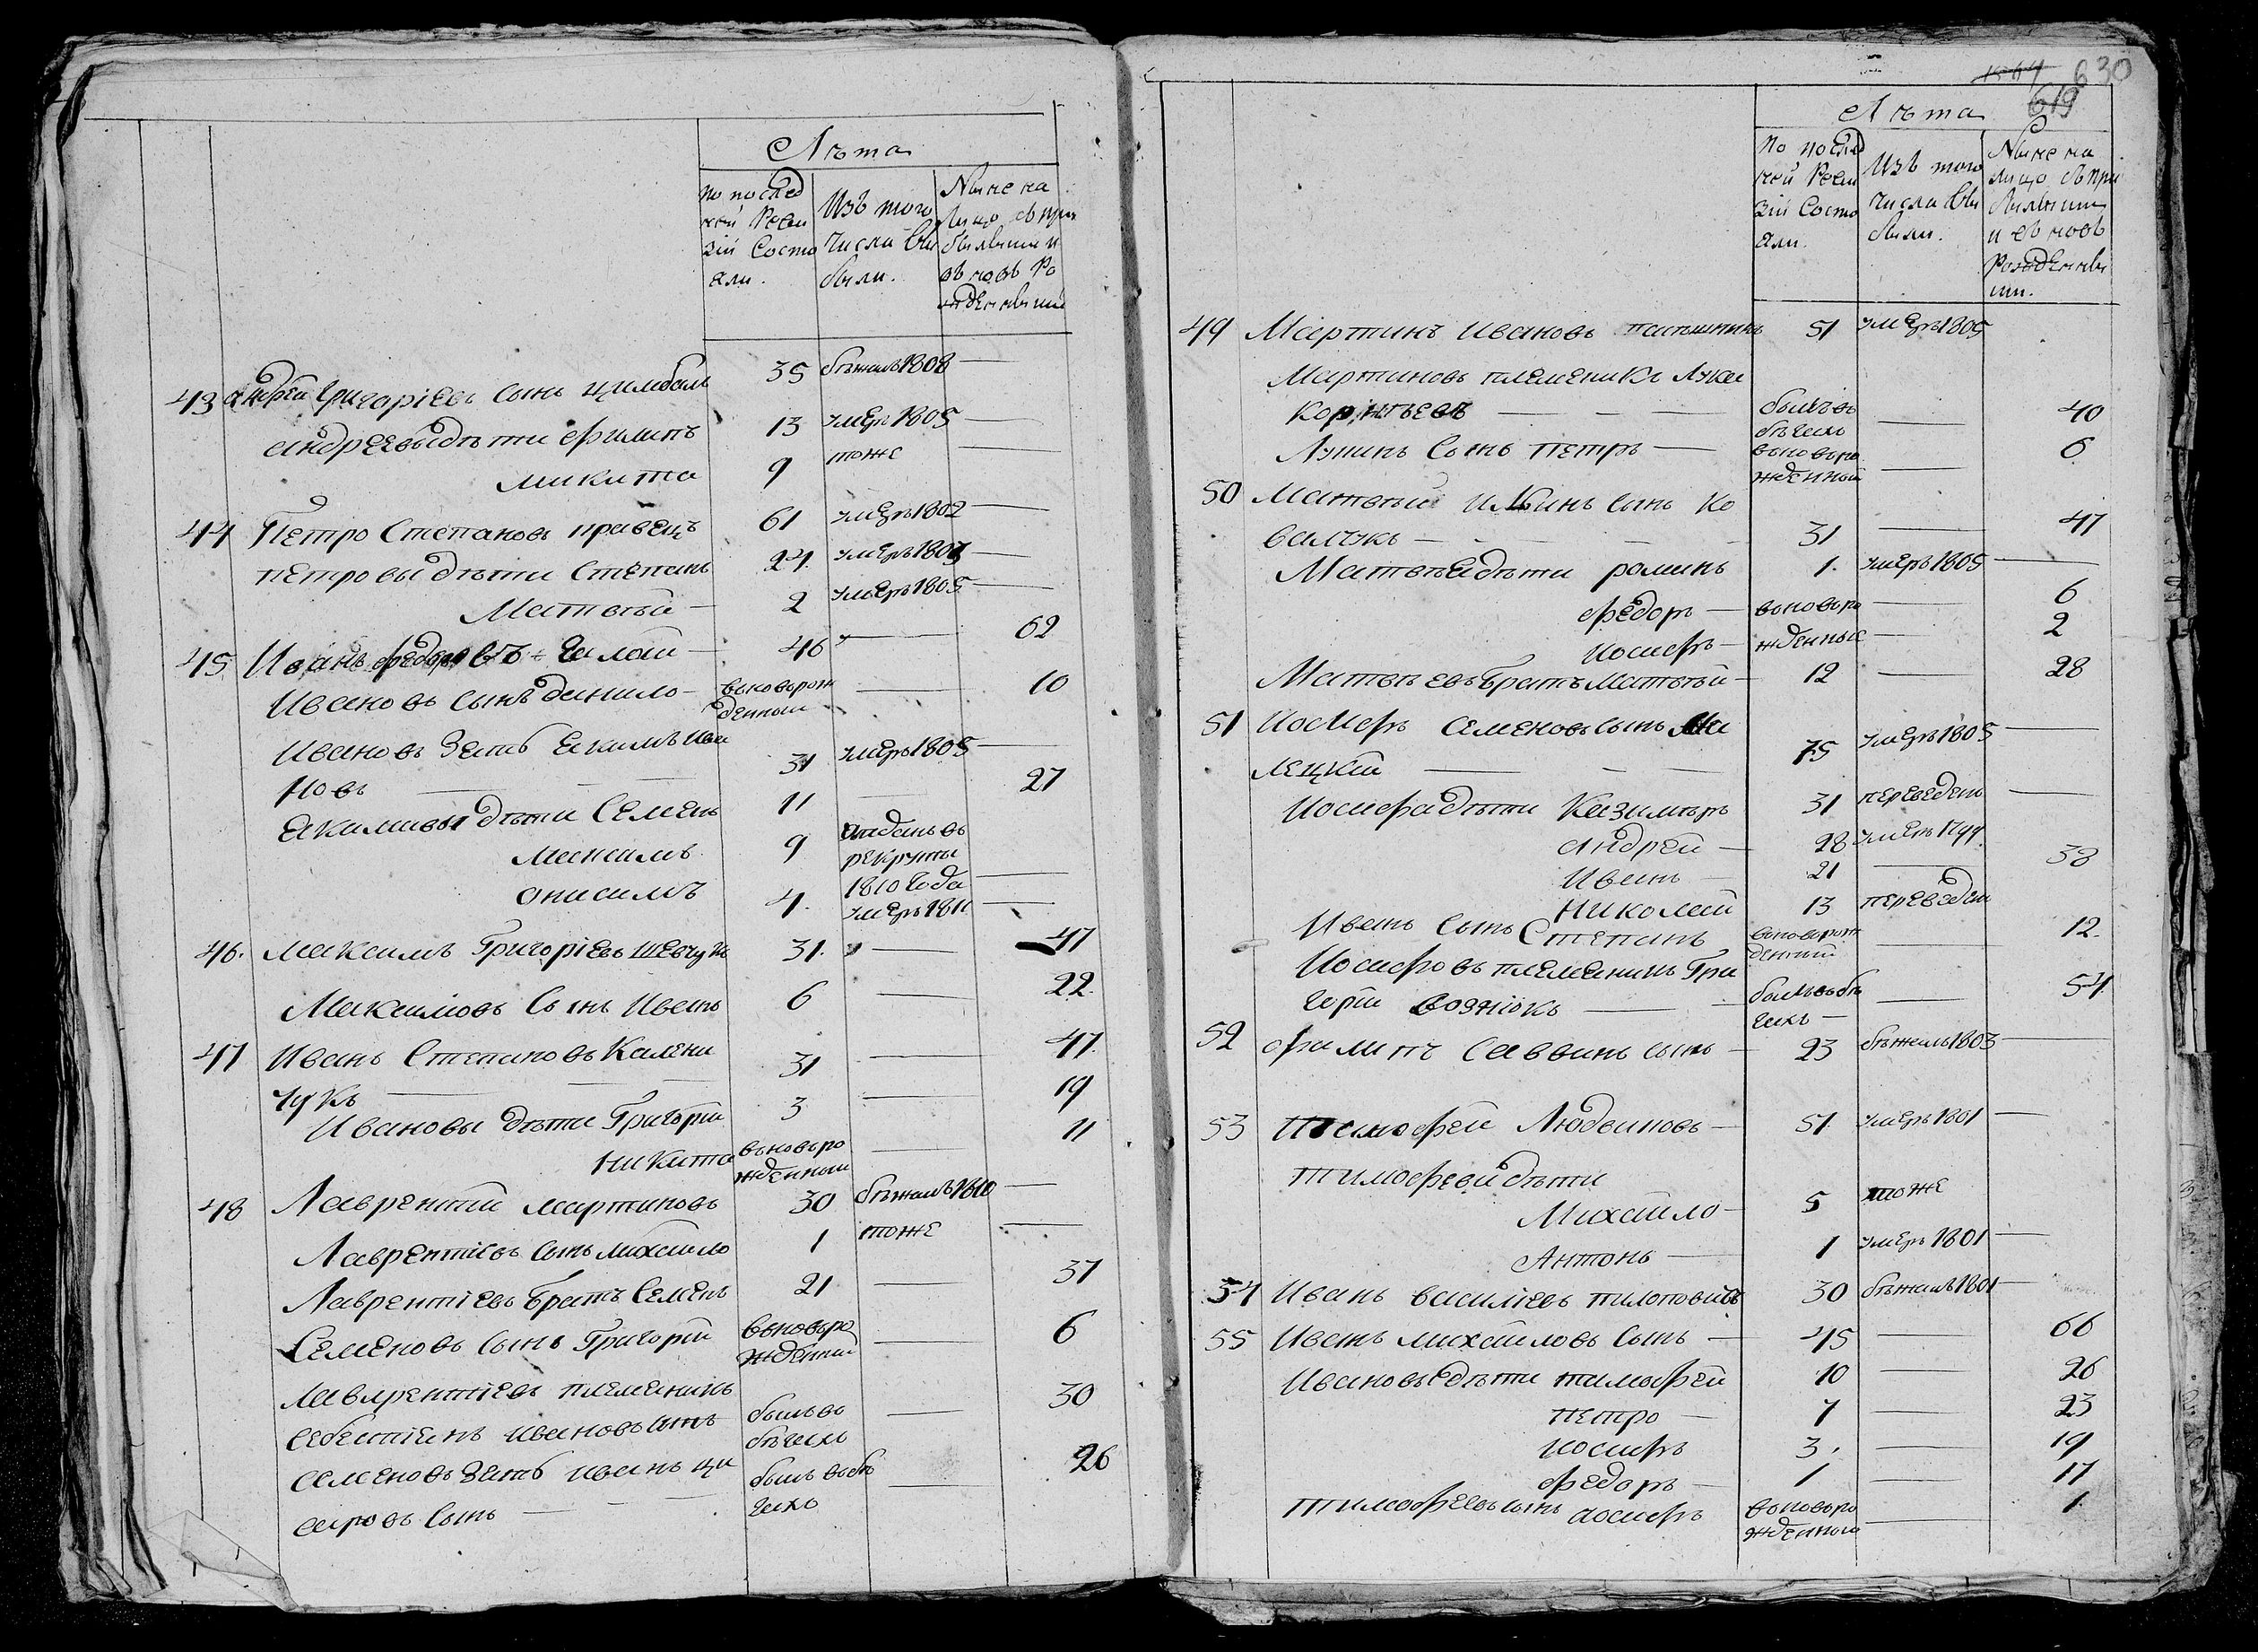 Лѣта
По послед
ней Реви
зіи Состо
яли.
Изъ того
числа Вы
были.
Ныне на
лицо съ при
бывшими и
въ новь Ро
жденными
43 Андрей Григоріевъ Сынъ Цимбал 35 бѣжалъ 1808 —
Андреевы дѣти Филипъ 13 умеръ 1805 —
микита 9 тоже —
44 Петро Степановъ кравецъ 61 умеръ 1802 —
петровы дѣти Степанъ 24 умеръ —
Матвѣй — 2 умеръ 1805 —
45 Иванъ Федоровъ — 46 — 62
Ивановъ Сынъ данило — вновьрож — 10
денный
Ивановъ Зять Якимъ Ива 31 умеръ 1805 —
новъ —
Якимовы дѣти Семенъ 11 — 27
максимъ 9 отданъ въ
рекруты
1810 года —
онисимъ 4. умеръ 1811 —
46. максимъ Григоріевъ Шевчукъ 31. — 47
Максимовъ Сынъ Иванъ 6 — 22.
47 Иванъ Степановъ Калени 31 — 47.
чукъ —
Ивановы дѣти Григорій 3 — 19
Никита вновьро — 11
жденный
48 Лаврентій мартиновъ 30 бѣжалъ 1810 —
Лаврентіевъ Сынъ михайло 1 тоже —
Лаврентіевъ братъ Семенъ 21 — 37
Семеновъ Сынъ Григорій вновьро — 6
жденный
лаврентіевъ племяникъ
себестіянъ ивановъ сынъ былъ въ — 30
бѣгахъ
семеновъ зять иванъ ци былъ въ бѣ — 26
сыровъ Сынъ — гахъ
1864 630
619
Лѣта
По послед
ней Реви
зіи Состо
яли.
Изъ того
числа Вы
были.
Ныне на
лицо съ при
бывшими
и въ новь
Рожденны
ми.
49 Мартинъ Ивановъ 51 умеръ 1805
Мартиновъ племеникъ Лука
— — былъ въ — 40
бѣгахъ
Лукинъ Сынъ петръ — вновьро — 6
жденный
50 Матвѣй Ильинъ Сынъ Ко
валчукъ — 31 — 47
Матвѣя дѣти романъ 1. умеръ 1805 —
Федоръ — вновьро — 6
иосифъ — жденные — 2
Матвѣевъ братъ матвѣй — 12 — 28
51 Иосифъ Семеновъ сынъ Ми
лецкій — 75 умеръ 1805 —
Иосифа дѣти Казимѣръ 31 переведенъ —
Андрей — 28 умеръ 1799
Иванъ — 21 — 38
Николай 13 переведенъ
Иванъ Сынъ Степанъ вновьрож — 12.
денный
Иосифовъ племеникъ Гри
горій Вознюкъ — былъ въ бѣ — 54
гахъ —
52 Филипъ Саввинъ сынъ — 23 бѣжалъ 1803 —
53 Тимофей Людвиновъ — 51 умеръ 1801 —
тимофея дѣти
Михайло — 5 тоже
Антонъ — 1 умеръ 1801 —
54 Иванъ василіевъ 30 бѣжалъ 1801 —
55 Иванъ михайловъ Сынъ — 45 — 66
Ивановы дѣти тимофей 10 — 26
петро — 7 — 23
иосифъ 3. — 19
федоръ — 1 — 17
тимофеевъ сынъ иосифъ вновьро — 1.
жденный